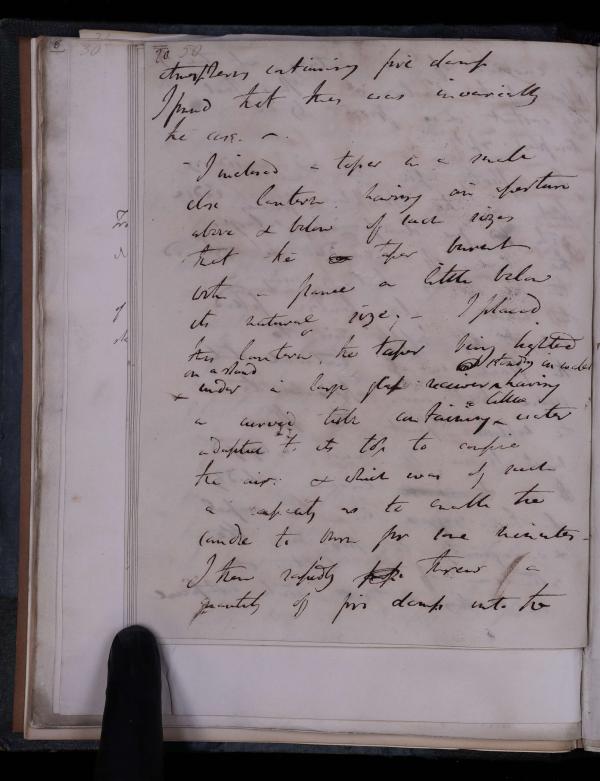 50
atmosphere containing fire damp
I found that this was invariably
the case. –
– I inclosed a taper in a small
close lantern having an aperture
above & below of such sizes
that the taper burnt
with a flame a little below
its natural size; – I placed
this lantern, the taper being lighted
on a stand standing in water
x under a large glass receiver having
a little
a curved tube containing water
adapted to its top to confine
the air. & which was of such
a capacity as to enable the
candle to burn for some minutes –
I then rapidly threw a
quantity of fire damp into the